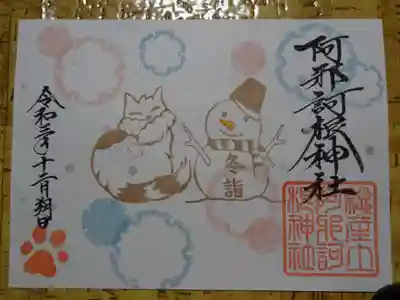 阿邪訶根神社
冬詣
令和三年十二月朔日
産土
阿邪訶
根神社